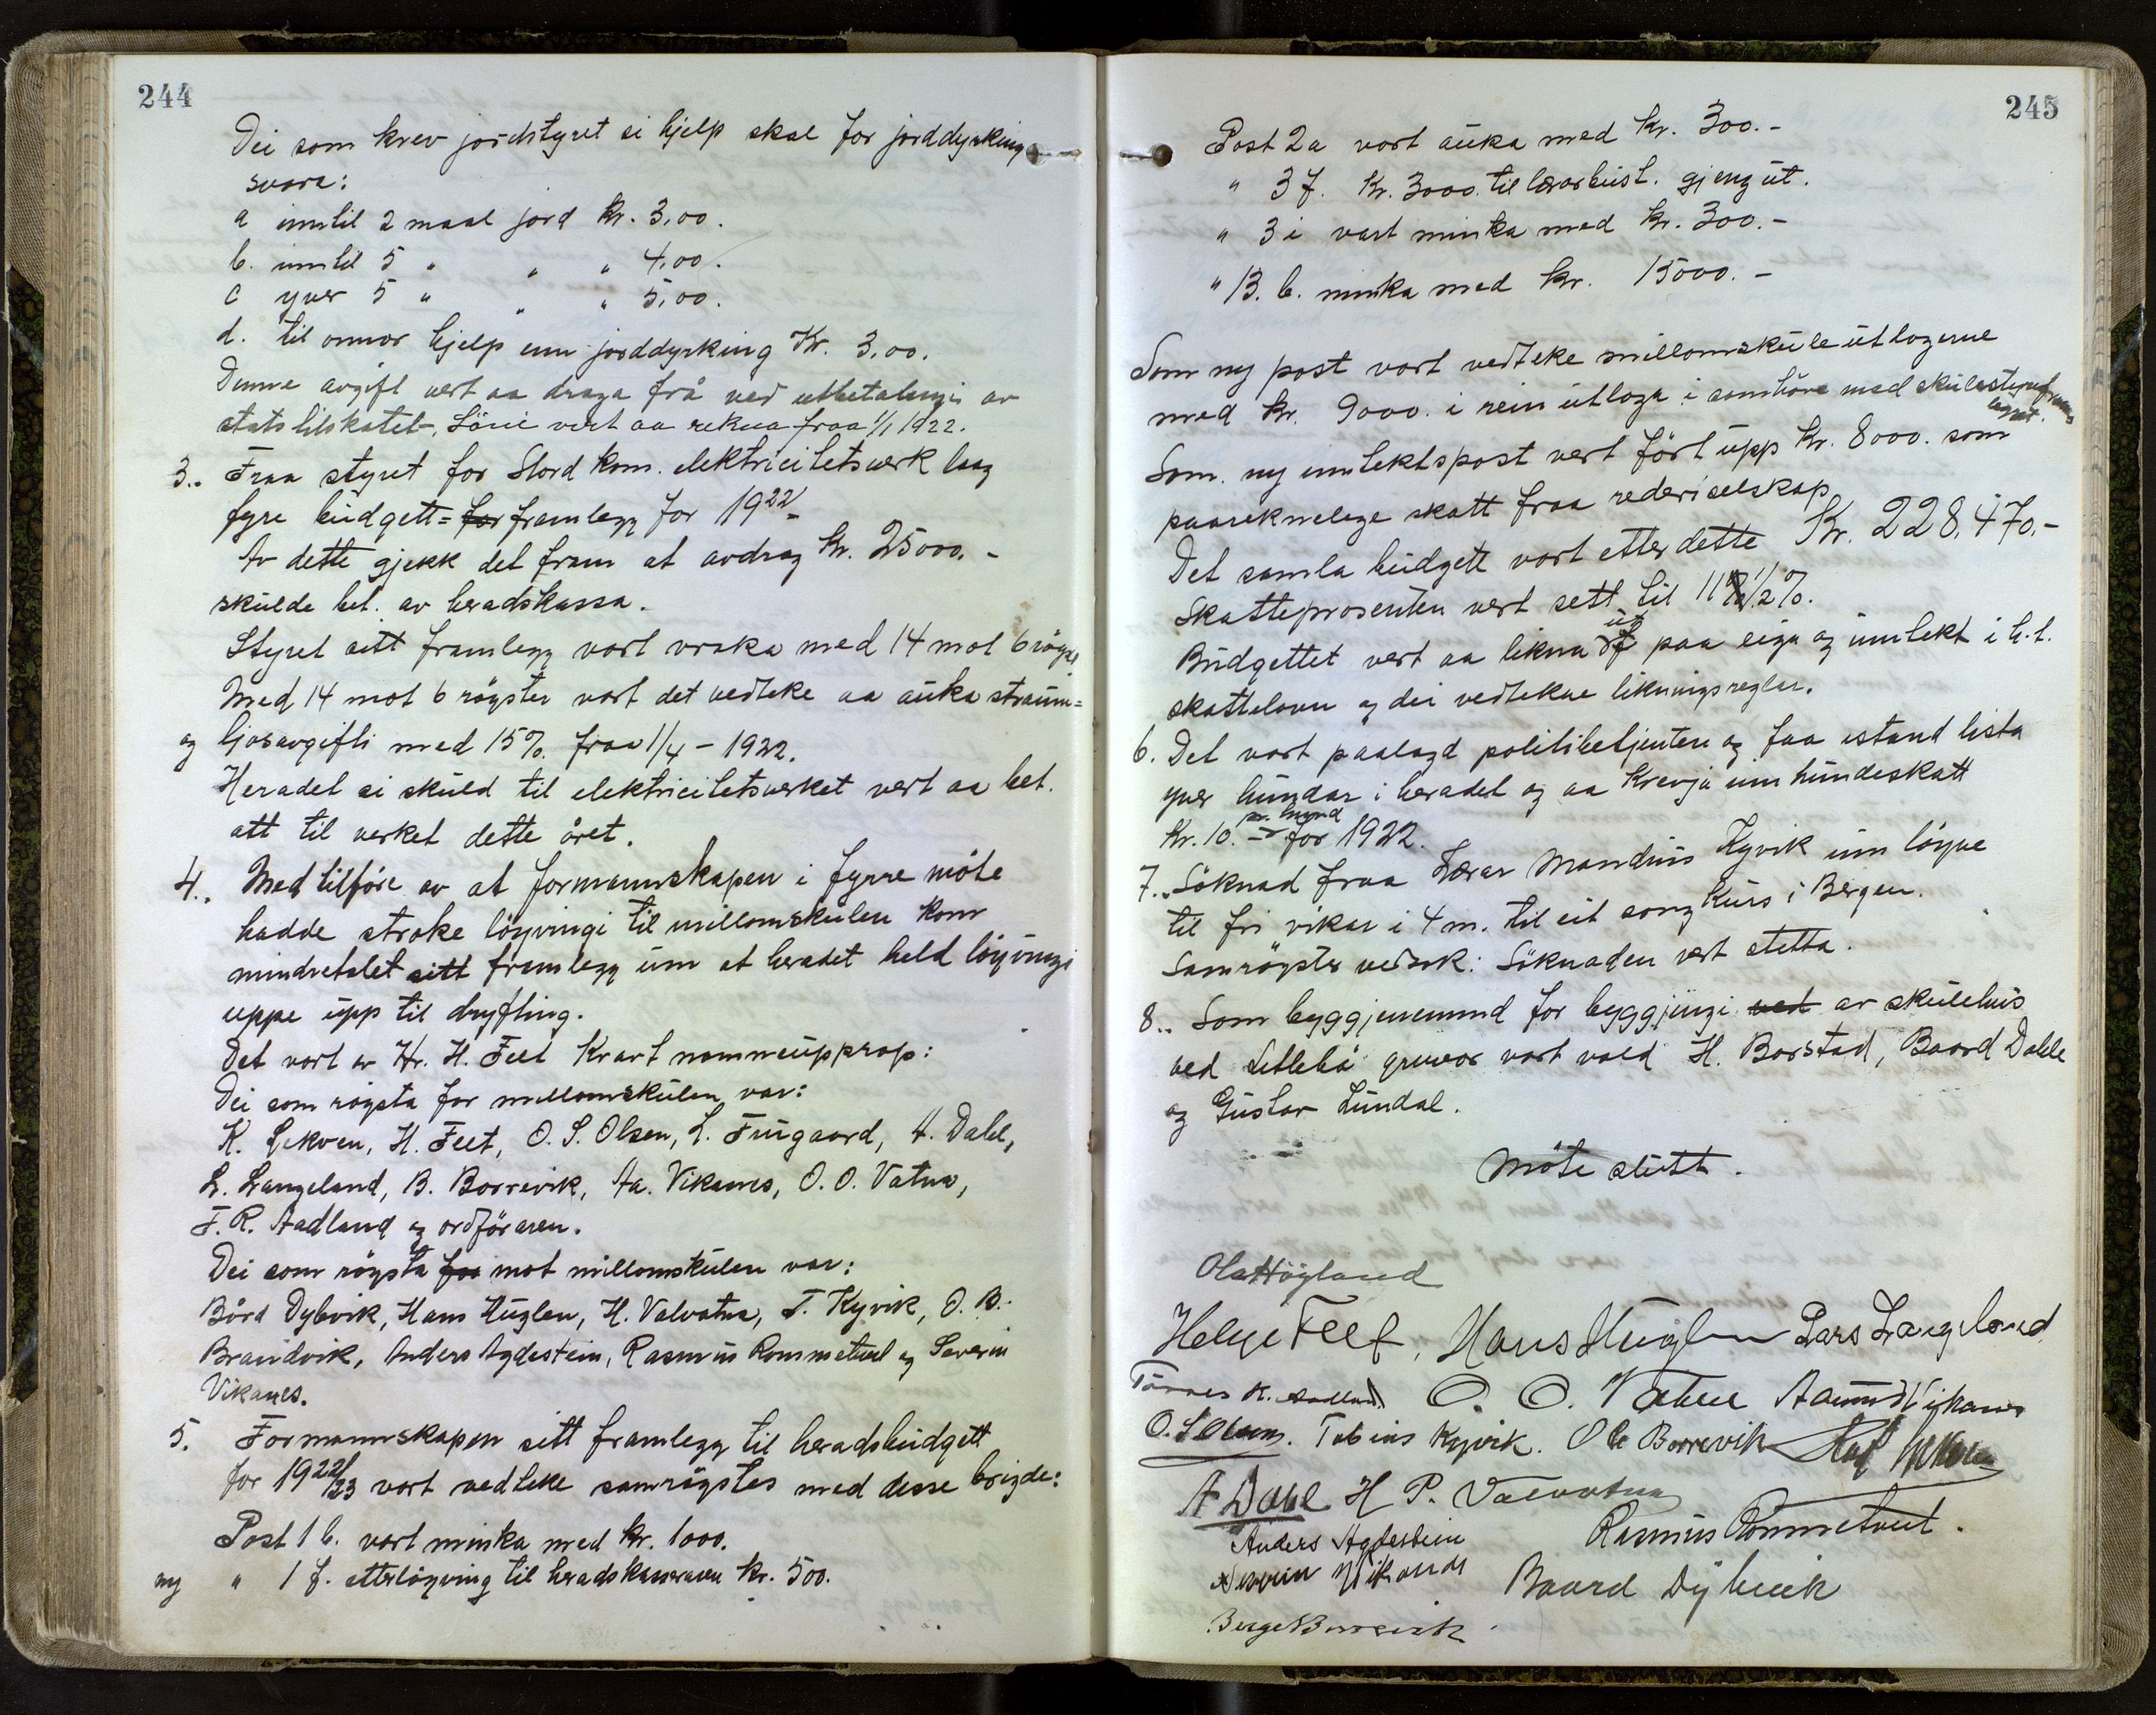 244
Dei som krev jordstyret si hjelp skal for jorddyrking
svara:
a inntil 2 maal jord Kr. 3,00.
b. inntil 5 " " " 4,00.
c yver 5 " " " 5,00.
d. til onnor hjelp enn jorddyrking Kr. 3,00.
Denne avgift vert aa draga frå ved utbetalingi av
statstilskotet. Löni vert aa rekna fraa 1/1 1922.
3.. Fraa styret for Stord kom. elektricitetsverk laag
fyre budgett= for framlegg for 1922
Av dette gjekk det fram at avdrag kr. 25000.-
skulde bet. av heradskassa.
Styret sitt framlegg vart vraka med 14 mot 6 röyst
Med 14 mot 6 röyster vart det vedteke aa auka straum=
og ljosavgifti med 15% fraa 1/4 - 1922.
Heradet si skuld til elektricitetsverket vert aa bet.
att til verket dette året.
4.. Med tilföre av at formannskapen i fyrre möte
hadde stroke löyvingi til millomskulen kom
mindretalet sitt framlegg um at heradet held löyvingi
uppe upp til dryfting.
Det vart av Hr. H. Feet kravt namneupprop:
Dei som röysta for millomskulen var:
K. Gjekvem, H. Feet, O. S. Olsen, L. Frugaard, A. Dahl,
L. Langeland, B. Borrevik, Aa. Vikanes, O. O. Vatna,
T. R. Aadland og ordföraren.
Dei som röysta for mot millomskulen var:
Bård Dybvik, Hans Huglen, H. Valvatna, T. Kyvik, O. B.
Brandvik, Anders Agdestein, Rasmus Rommetveit og Severin
Vikanes.
5. Formannskapen sitt framlegg til heradsbudgett
for 1922/23 vart vedteke samröystes med desse brigde:
Post 1 b. vart minka med kr. 1000.
ny " 1 f. etterlöyving til heradskasseraren kr. 500.
245
Post 2a vart auka med kr. 300.-
" 3 f. Kr. 3000. til lærarbust. gjeng ut.
" 3 i vart minka med kr. 300.-
" 13. b. minka med kr. 15000.-
Som ny post vart vedteke millomskuleutlogerne
med kr. 9000. i rein utloga i samhöve med skulestyreframlegget.
Som ny inntektspost vert fört upp kr. 8000. som
paareknelege skatt fraa rederiselskap
Det samla budgett vart etter dette Kr. 228.470.-
Skatteprosenten vert sett til 11 1/2%.
Budgettet vert aa likna ut paa eige og inntekt i h.t.
skattelovn og dei vedtekne likningsreglar.
6. Det vart paalagd politibetjentene og faa istand lista
yver hundar i heradet og aa krevja inn hundeskatt
kr. 10.- pr. hund for 1922.
7.. Söknad fraa Lærar Mandius Kyvik um löyve
til fri vikar i 4 m. til eit songkurs i Bergen.
Samröystes vedtok: Söknaden vert stetta.
8.. Som byggjenemnd for byggjingi ved av skulehus
ved Litlebö gruvor vart vald H. Borstad, Baard Dalle
og Gustav Lundal.
Möte slutt.
Ola Högland
Helge Feet, Hans Huglen Lars Langeland
Tönnes R. Aadland. O. O. Vatna Aamund Vikanes
O. S Olsen. Tobias Kyvik. Ole Borrevik
A Dahl H P. Valvatna
Anders Agdestein Rasmus Rommetveit.
Severin Vikanes Baard Dybvik
Berge Borrevik